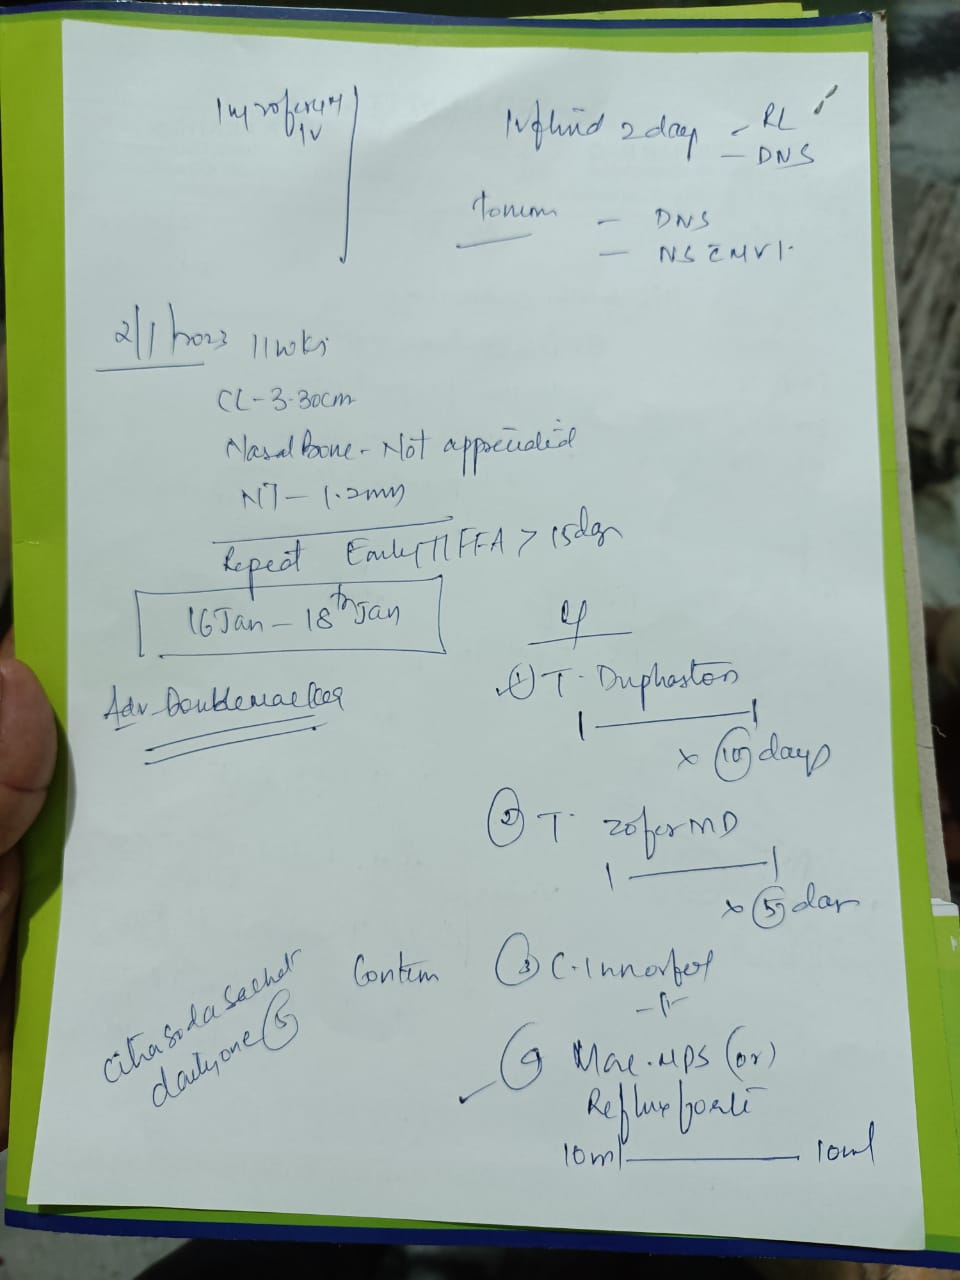 Inj zofer 4M
IV
IV fluid 2 day - RL
- DNS
- DNS
- NS c MVI.
2/1/2023 11 wks
CL - 3.30cm
Nasal Bone - Not appreciated
NT - 1.2mm
Repeat Early TIFFA > 15 days
16 Jan - 18th Jan
Adv Double marker
① T. Duphaston
1 —— 1
x 10 days
② T. Zofer MD
1 —— 1
x 5 days
Contin ③ C.
citra soda sachet
daily one 5
Mac. MPS (or)
Reflux forte
10ml —— 10ml